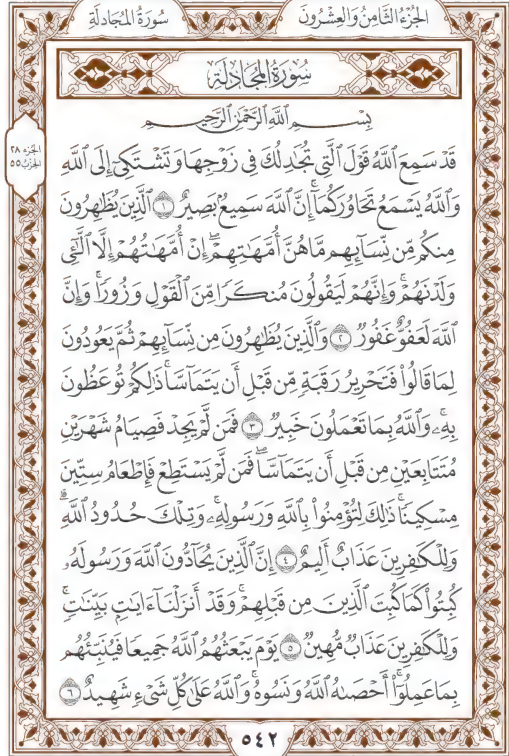 الجُزْءُ الثَّامِنُ وَالعِشْرُونَ
سُورَةُ المُجَادلَةِ
سُورَةُ المُجَادلَةِ
بِسْمِ ٱللَّهِ ٱلرَّحْمَٰنِ ٱلرَّحِيمِ
الجزء ٢٨
الحزب ٥٥
قَدْ سَمِعَ ٱللَّهُ قَوْلَ ٱلَّتِي تُجَٰدِلُكَ فِي زَوْجِهَا وَتَشْتَكِيٓ إِلَى ٱللَّهِ
وَٱللَّهُ يَسْمَعُ تَحَاوُرَكُمَآۚ إِنَّ ٱللَّهَ سَمِيعُۢ بَصِيرٌ ١ ٱلَّذِينَ يُظَٰهِرُونَ
مِنكُم مِّن نِّسَآئِهِم مَّا هُنَّ أُمَّهَٰتِهِمْۖ إِنْ أُمَّهَٰتُهُمْ إِلَّا ٱلَّٰٓـِٔي
وَلَدْنَهُمْۚ وَإِنَّهُمْ لَيَقُولُونَ مُنكَرًا مِّنَ ٱلْقَوْلِ وَزُورًاۚ وَإِنَّ
ٱللَّهَ لَعَفُوٌّ غَفُورٌ ٢ وَٱلَّذِينَ يُظَٰهِرُونَ مِن نِّسَآئِهِمْ ثُمَّ يَعُودُونَ
لِمَا قَالُوا۟ فَتَحْرِيرُ رَقَبَةٍ مِّن قَبْلِ أَن يَتَمَآسَّاۚ ذَٰلِكُمْ تُوعَظُونَ
بِهِۦۚ وَٱللَّهُ بِمَا تَعْمَلُونَ خَبِيرٌ ٣ فَمَن لَّمْ يَجِدْ فَصِيَامُ شَهْرَيْنِ
مُتَتَابِعَيْنِ مِن قَبْلِ أَن يَتَمَآسَّاۖ فَمَن لَّمْ يَسْتَطِعْ فَإِطْعَامُ سِتِّينَ
مِسْكِينًاۚ ذَٰلِكَ لِتُؤْمِنُوا۟ بِٱللَّهِ وَرَسُولِهِۦۚ وَتِلْكَ حُدُودُ ٱللَّهِۗ
وَلِلْكَٰفِرِينَ عَذَابٌ أَلِيمٌ ٤ إِنَّ ٱلَّذِينَ يُحَآدُّونَ ٱللَّهَ وَرَسُولَهُۥ
كُبِتُوا۟ كَمَا كُبِتَ ٱلَّذِينَ مِن قَبْلِهِمْۚ وَقَدْ أَنزَلْنَآ ءَايَٰتٍۭ بَيِّنَٰتٍۚ
وَلِلْكَٰفِرِينَ عَذَابٌ مُّهِينٌ ٥ يَوْمَ يَبْعَثُهُمُ ٱللَّهُ جَمِيعًا فَيُنَبِّئُهُم
بِمَا عَمِلُوٓا۟ۚ أَحْصَىٰهُ ٱللَّهُ وَنَسُوهُۚ وَٱللَّهُ عَلَىٰ كُلِّ شَىْءٍ شَهِيدٌ ٦
٥٤٢